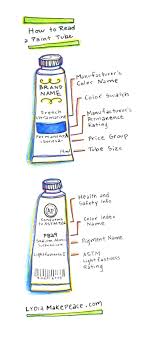 How to Read
a Paint Tube
Manufacturer's
Color Name
BRAND
NAME
Color Swatch
French
Ultramarine
Manufacturer's
Permanence
Rating
Permanence
Series 2
Price Group
Tube Size
Health and
Safety Info
Conforms
to ASTM
Color Index
Name
PB29
Pigment Name
Lightfastness I
ASTM
Lightfastness
Rating
LydiaMakepeace.com